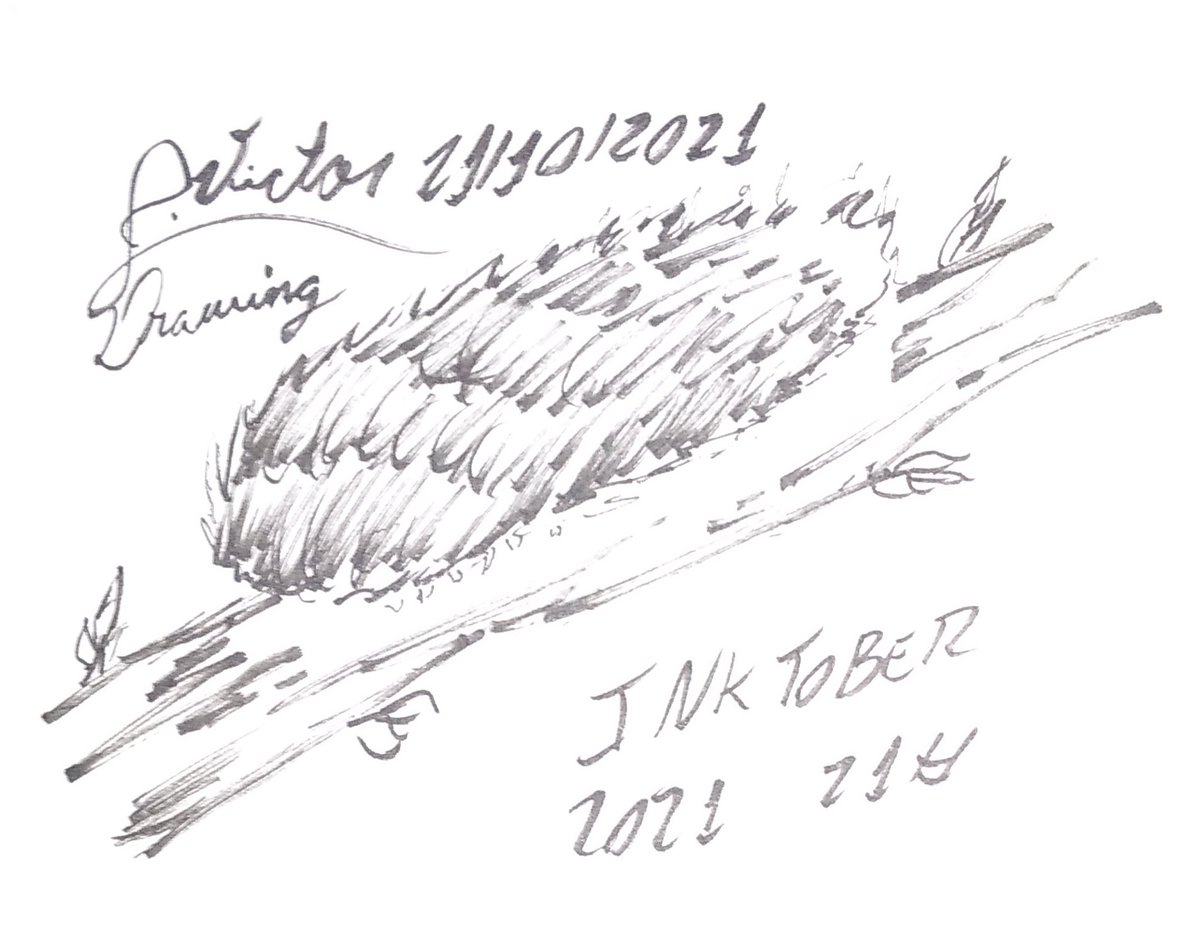 P. Victor 21/10/2021
Drawing
INKTOBER
2021 21